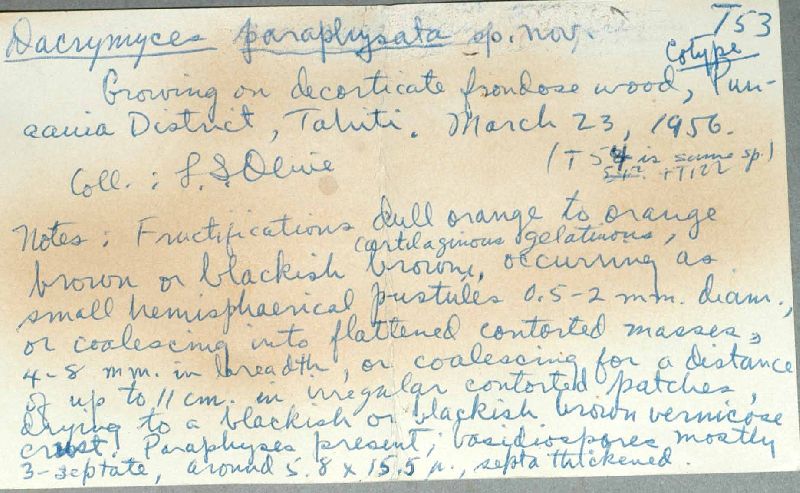 Dacrymyces paraphysata sp. nov. T53
Cotype
Growing on decorticate frondose wood, Pun-
aauia District, Tahiti. March 23, 1956.
Coll.: L.S. Olive (T54 is same sp.)
+T122
Notes: Fructifications dull orange to orange
cartilaginous gelatinous,
brown or blackish brown, occurring as
small hemisphaerical pustules 0.5-2 mm. diam.,
or coalescing into flattened contorted masses,
4-8 mm. in breadth, or coalescing for a distance
of up to 11 cm. in irregular contorted patches,
drying to a blackish or blackish brown vernicose
crust. Paraphyses present; basidiospores mostly
3-septate, around 5.8 x 15.5 µ., septa thickened.